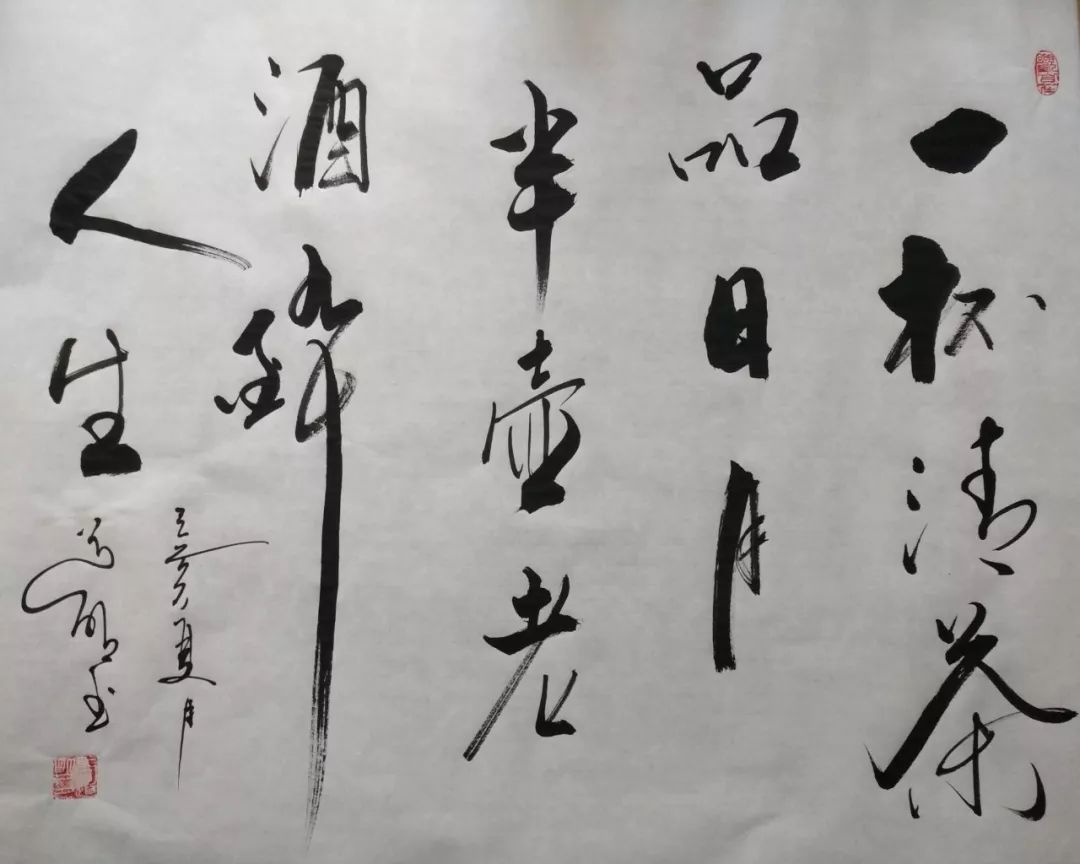 一杯清茶
品日月
半壶老
酒醉
人生
夏月